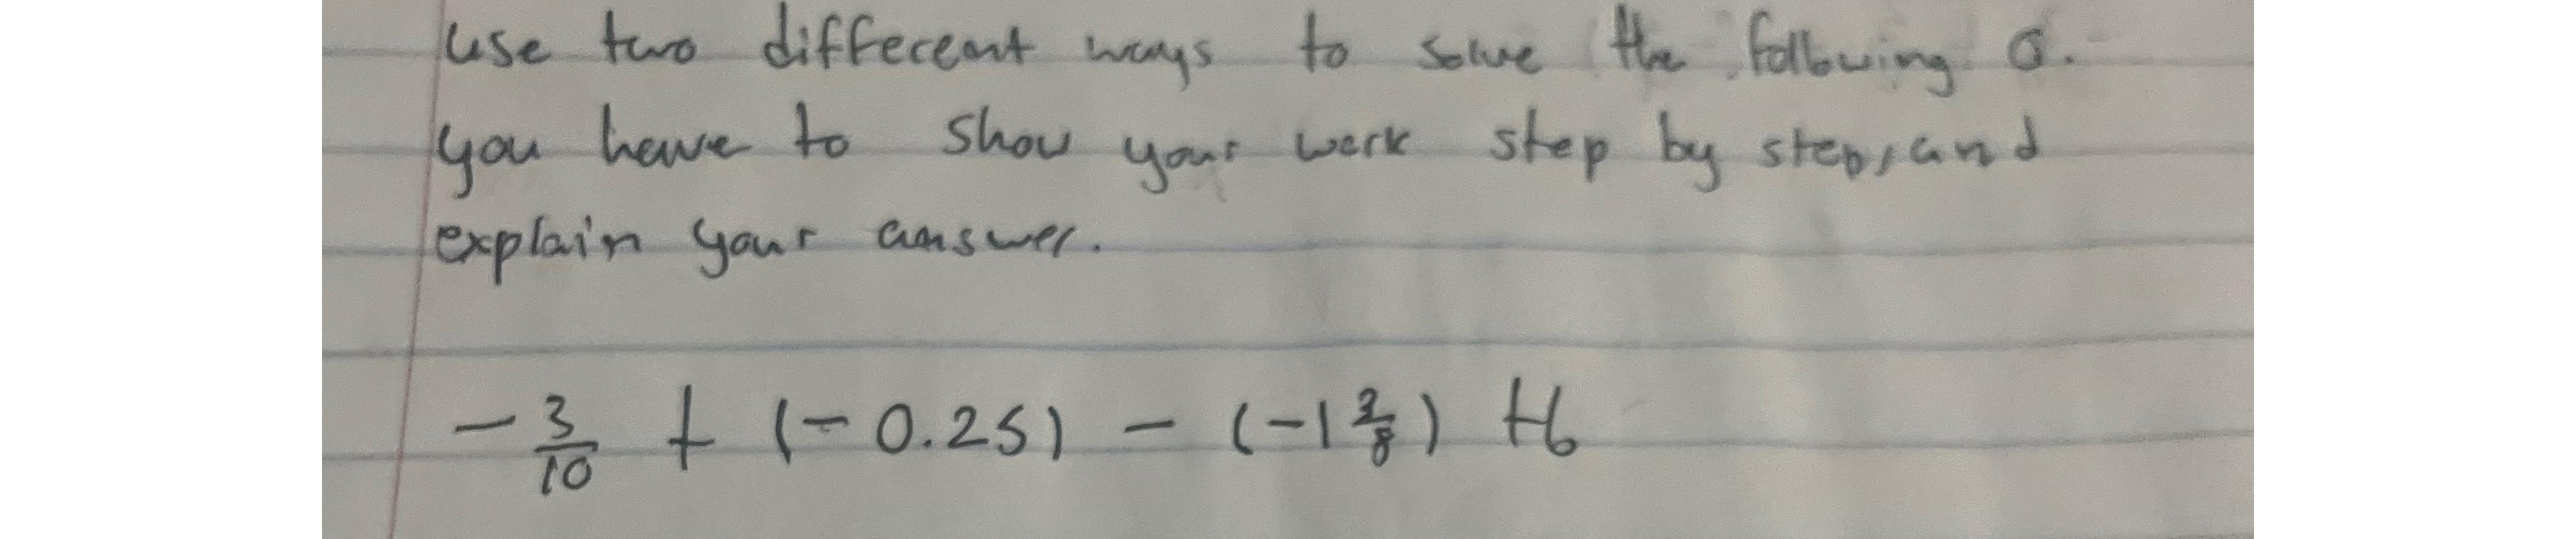 use two different ways to solve the following Q.
you have to show your work step by step, and
explain your answer.
- 3/10 + (-0.25) - (-1 2/8) +6